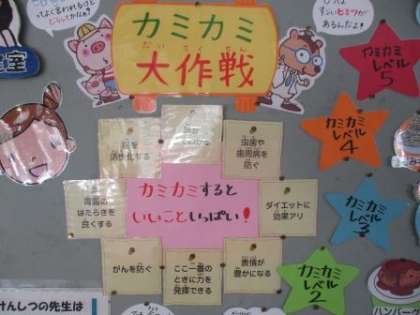 カミカミ
だいさくせん
大作戦
室
カミカミ
レベル
5
カミカミ
レベル
4
カミカミ
レベル
3
カミカミ
レベル
2
脳を
活性化する
虫歯や
歯周病を
防ぐ
カミカミすると
いいこといっぱい!
胃腸の
はたらきを
良くする
ダイエットに
効果アリ
がんを防ぐ
ここ一番の
ときに力を
発揮できる
表情が
豊かになる
けんしつの先生は
ハンバー